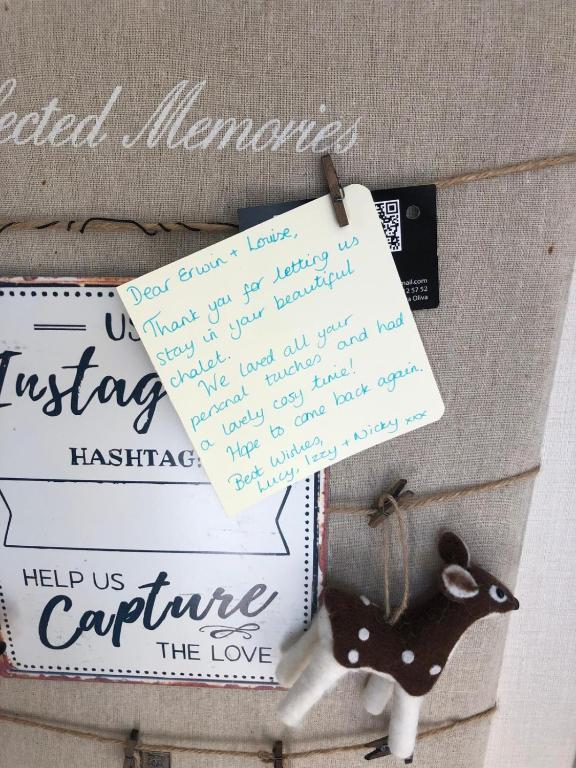 Memories
Dear Erwin + Louise,
Thank you for letting us
stay in your beautiful
chalet.
We loved all your
personal touches and had
a lovely cosy time!
Hope to come back again.
Best Wishes,
Lucy, Izzy + Nicky xxx
US
Instag
HASHTAG:
HELP US
Capture
THE LOVE
mail.com
2 57 52
a Oliva